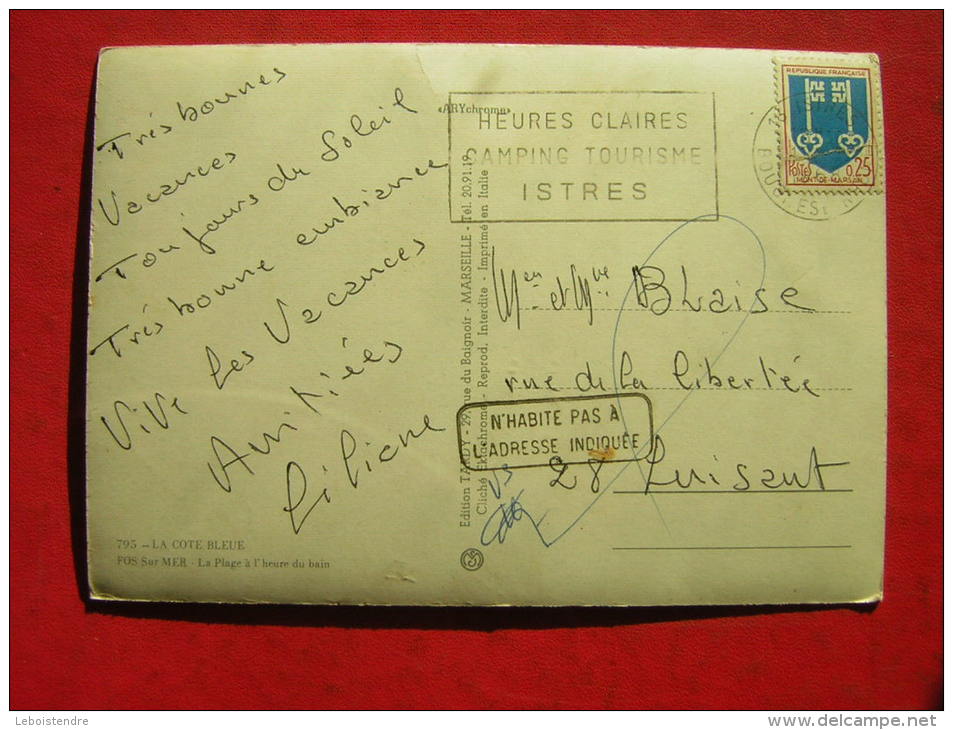 Très bonnes
Vacances
Toujours du Soleil
Très bonne embiance
ViVe les Vacances
Amitiées
Liliane
795 - LA COTE BLEUE
FOS Sur MER - La Plage à l'heure du bain
«ARYchrome»
Edition TARDY - 29, rue du Baignoir - MARSEILLE - Tél. 20.91.19
Cliché Ektachrome - Reprod. Interdite - Imprimé en Italie
HEURES CLAIRES
CAMPING TOURISME
ISTRES
REPUBLIQUE FRANÇAISE
POSTES 0,25
MONT-DE-MARSAN
Mr et Mme BLaise
rue de la libertée
N'HABITE PAS À
L'ADRESSE INDIQUÉE
28 Luisant
Leboistendre
www.delcampe.net